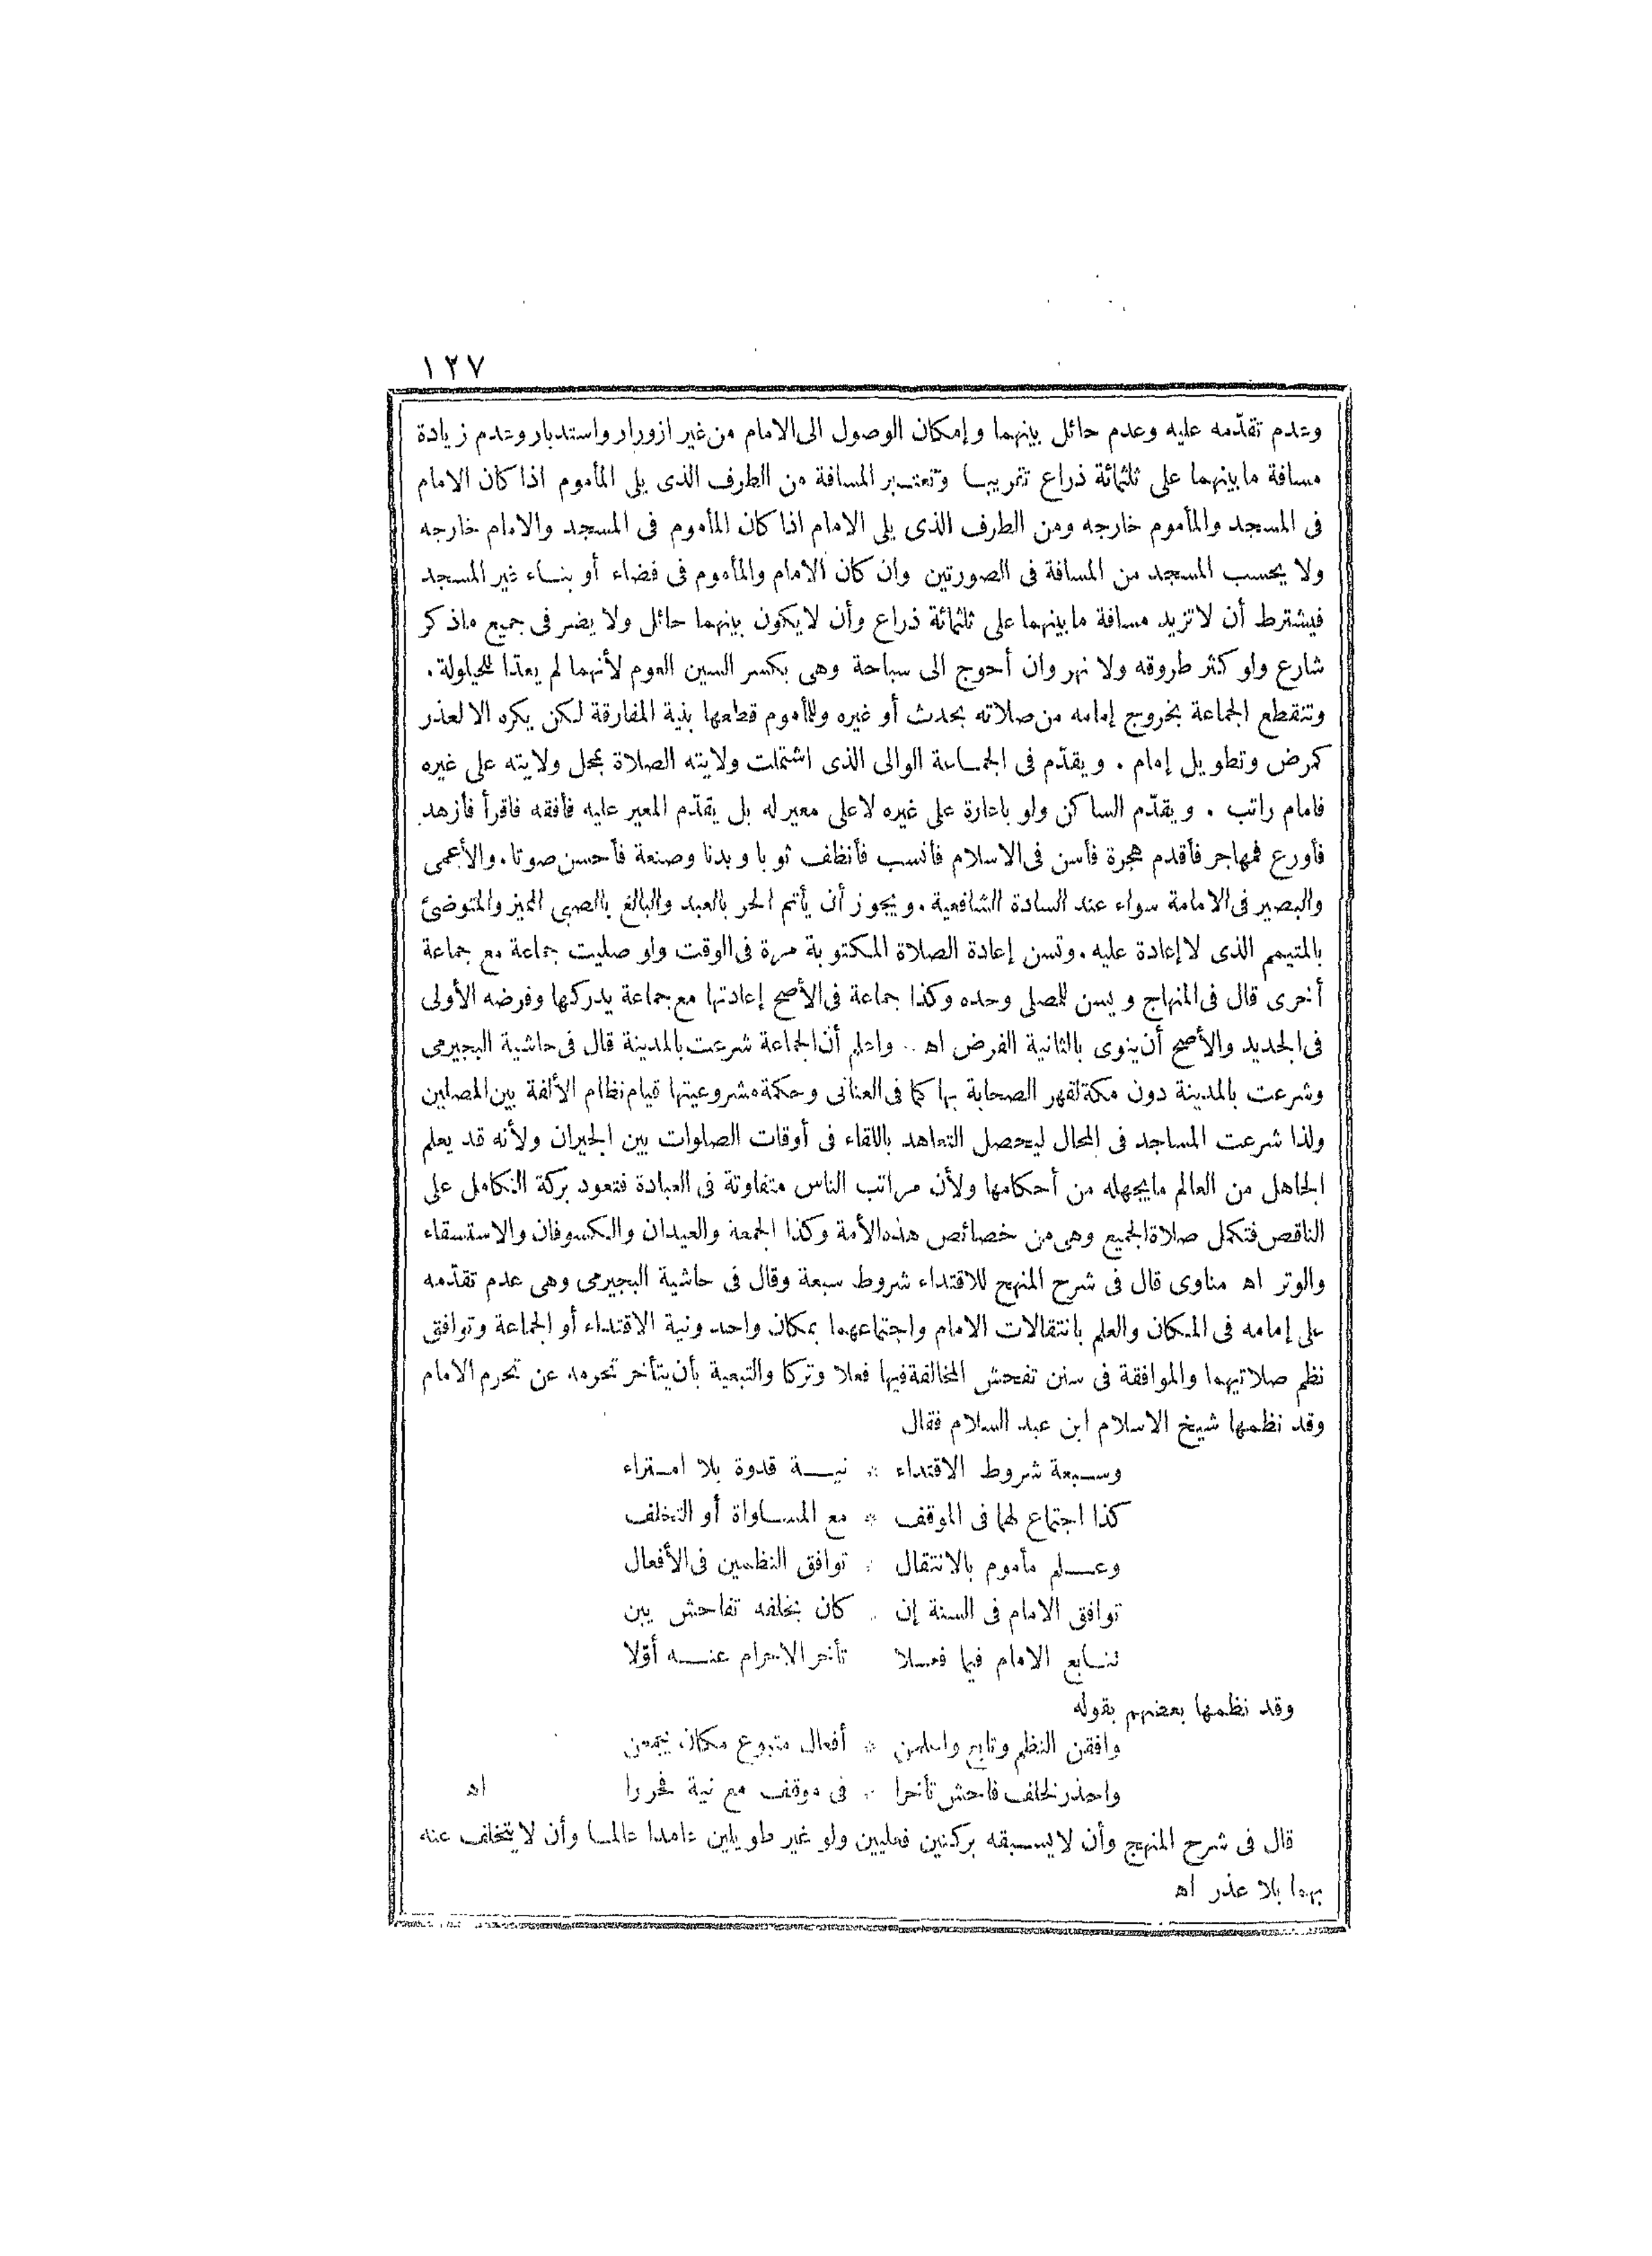 ١٢٧
وعدم تقدّمه عليه وعدم حائل بينهما وإمكان الوصول الى الامام من غير ازورار واستدبار وعدم زيادة
مسافة مابينهما على ثلثمائة ذراع تقريبا وتعتبر المسافة من الطرف الذى يلى المأموم اذا كان الامام
فى المسجد والمأموم خارجه ومن الطرف الذى يلى الامام اذا كان المأموم فى المسجد والامام خارجه
ولا يحسب المسجد من المسافة فى الصورتين وان كان الامام والمأموم فى فضاء أو بناء غير المسجد
فيشترط أن لا تزيد مسافة مابينهما على ثلثمائة ذراع وأن لا يكون بينهما حائل ولا يضر فى جميع ماذكر
شارع ولو كثر طروقه ولا نهر وان أحوج الى سباحة وهى بكسر السين العوم لأنهما لم يعدّا للحيلولة .
وتنقطع الجماعة بخروج إمامه من صلاته بحدث أو غيره وللمأموم قطعها بنية المفارقة لكن يكره الا لعذر
كمرض وتطويل إمام . ويقدّم فى الجماعة الوالى الذى اشتملت ولايته الصلاة بمحل ولايته على غيره
فامام راتب . ويقدّم الساكن ولو باعارة على غيره لا على معير له بل يقدّم المعير عليه فأفقه فاقرأ فأزهد
فأورع فمهاجر فأقدم هجرة فأسن فى الاسلام فأنسب فأنظف ثوبا وبدنا وصنعة فأحسن صوتا . والأعمى
والبصير فى الامامة سواء عند السادة الشافعية . ويجوز أن يأتم الحر بالعبد والبالغ بالصبى المميز والمتوضئ
بالمتيمم الذى لا إعادة عليه . وتسن إعادة الصلاة المكتوبة مرة فى الوقت ولو صليت جماعة مع جماعة
أخرى قال فى المنهاج ويسن للمصلى وحده وكذا جماعة فى الأصح إعادتها مع جماعة يدركها وفرضه الأولى
فى الجديد والأصح أن ينوى بالثانية الفرض اه . واعلم أن الجماعة شرعت بالمدينة قال فى حاشية البجيرمى
وشرعت بالمدينة دون مكة لقهر الصحابة بها كما فى العنانى وحكمة مشروعيتها قيام نظام الألفة بين المصلين
ولذا شرعت المساجد فى المحال ليحصل التعاهد باللقاء فى أوقات الصلوات بين الجيران ولأنه قد يعلم
الجاهل من العالم مايجهله من أحكامها ولأن مراتب الناس متفاوتة فى العبادة فتعود بركة الكامل على
الناقص فتكمل صلاة الجميع وهى من خصائص هذه الأمة وكذا الجمعة والعيدان والكسوفان والاستسقاء
والوتر اه مناوى قال فى شرح المنهج للاقتداء شروط سبعة وقال فى حاشية البجيرمى وهى عدم تقدّمه
على إمامه فى المكان والعلم بانتقالات الامام واجتماعهما بمكان واحد ونية الاقتداء أو الجماعة وتوافق
نظم صلاتيهما والموافقة فى سنن تفحش المخالفة فيها فعلا وتركا والتبعية بأن يتأخر تحرمه عن تحرم الامام
وقد نظمها شيخ الاسلام ابن عبد السلام فقال
وسبعة شروط الاقتداء * نية قدوة بلا امتراء
كذا اجتماع لهما فى الموقف * مع المساواة أو التخلف
وعلم مأموم بالانتقال * توافق النظمين فى الأفعال
توافق الامام فى السنة إن * كان بخلفه تفاحش يبن
تتابع الامام فيما فعلا تأخر الاحرام عنه أوّلا
وقد نظمها بعضهم بقوله
وافقن النظم وتابع واعلمن * أفعال متبوع مكان يجمعن
واحذر لخلف فاحش تأخرا * فى موقف مع نية فحررا اه
قال فى شرح المنهج وأن لا يسبقه بركنين فعليين ولو غير طويلين عامدا عالما وأن لا يتخلف عنه
بهما بلا عذر اه